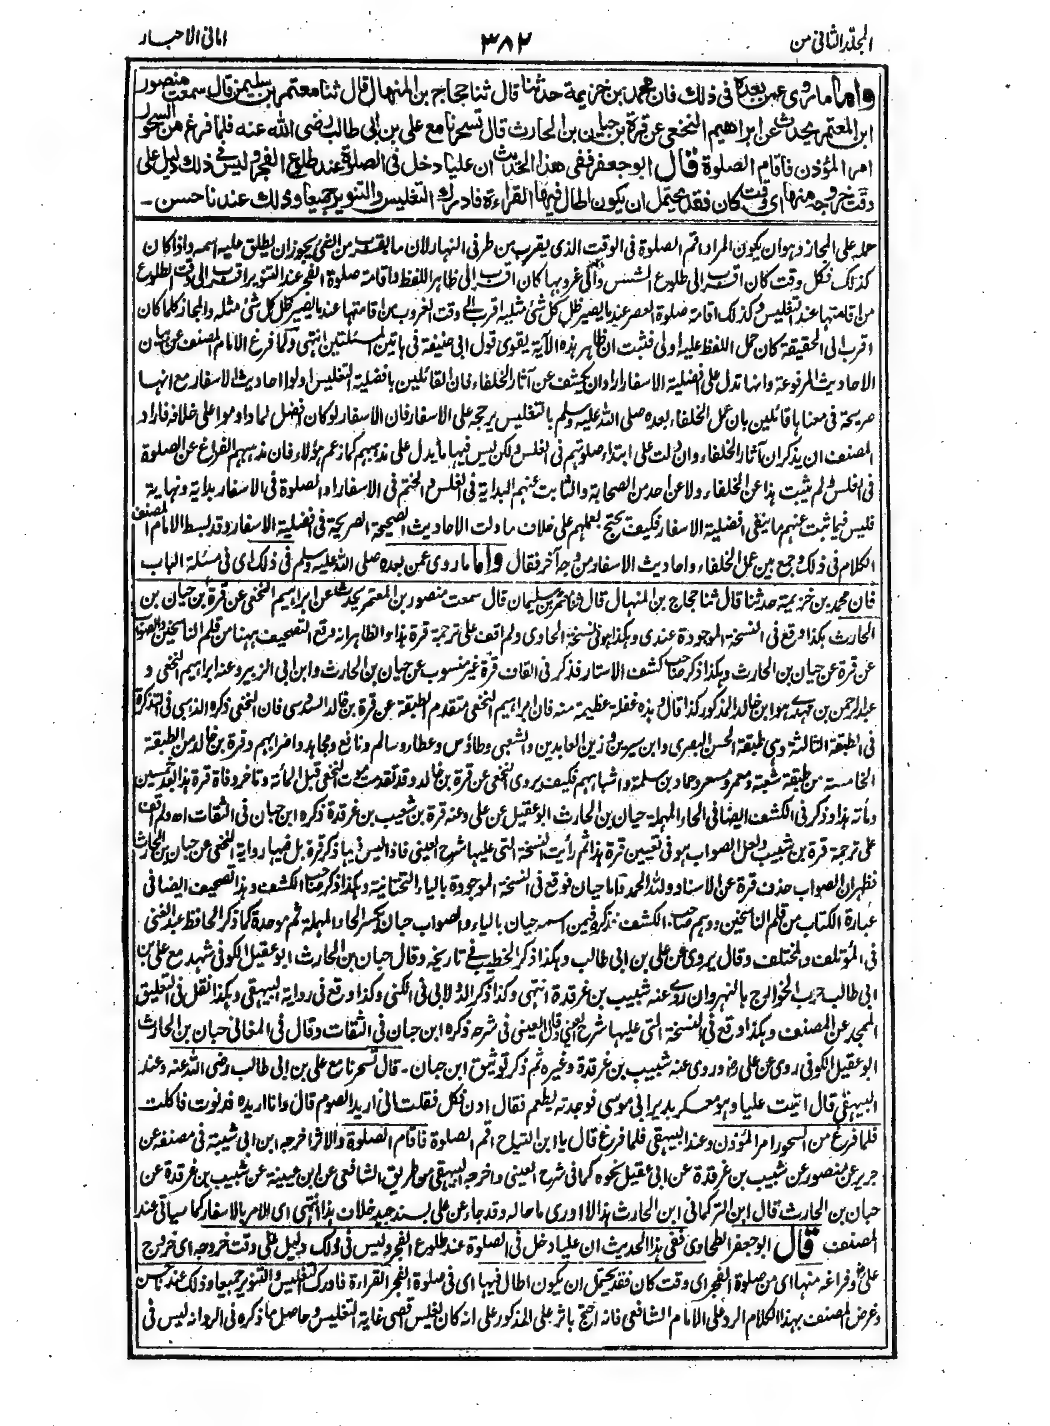 المجلد الثانی من
۳۸۲
امانی الاحبار
واما ماروی عمن بعده فی ذلک فان محمد بن خزیمة حدثنا قال ثنا حجاج بن المنهال قال ثنا معتمر بن سلیمن قال سمعت منصور
ابن المعتمر یحدث عن ابراهیم النخعی عن قرة بن حیان بن الحارث قال تسحرنا مع علی بن ابی طالب رضی الله عنه فلما فرغ من السحور
امر المؤذن فاقام الصلوة قال ابو جعفر ففی هذا الحدیث ان علیا دخل فی الصلوة عند طلوع الفجر ولیس فی ذلک دلیل علی
وقت خروجه منها ای وقت کان فقد یحتمل ان یکون اطال فیها القراءة فادرک التغلیس والتنویر جمیعا وذلک عندنا حسن ۔
حمله علی المجاز وهو ان یکون المراد اقم الصلوة فی الوقت الذی یقرب من طرفی النهار لان ما یقرب من الشئ یجوز ان یطلق علیه اسمه واذا کان
کذلک فکل وقت کان اقرب الی طلوع الشمس والی غروبها کان اقرب الی ظاهر اللفظ واقامة صلوة الفجر عند التنویر اقرب الی وقت الطلوع
من اقامتها عند التغلیس وکذلک اقامة صلوة العصر عند ما یصیر ظل کل شئ مثلیه اقرب الی وقت الغروب من اقامتها عند ما یصیر ظل کل شئ مثله والمجاز کلما کان
اقرب الی الحقیقة کان حمل اللفظ علیه اولی فثبت ان ظاهر هذه الآیة یقوی قول ابی حنیفة فی هاتین المسئلتین انتهی ولما فرغ الامام المصنف عن بیان
الاحادیث المرفوعة وانها تدل علی فضیلة الاسفار اراد ان یکشف عن آثار الخلفاء فان القائلین بافضلیة التغلیس اولوا احادیث الاسفار مع انها
صریحة فی معناها قائلین بان عمل الخلفاء بعده صلی الله علیه وسلم بالتغلیس یرجحه علی الاسفار فان الاسفار لو کان افضل لما داوموا علی خلافه فاراد
المصنف ان یذکر ان آثار الخلفاء وان دلت علی ابتداء صلوتهم فی الغلس ولکن لیس فیها ما یدل علی مذهبهم کما زعم هؤلاء فان مذهبهم الفراغ عن الصلوة
فی الغلس ولم یثبت هذا عن الخلفاء ولا عن احد من الصحابة والثابت عنهم البدایة فی الغلس والختم فی الاسفار او الصلوة فی الاسفار بدایة ونهایة
فلیس فیما ثبت عنهم ما ینفی افضلیة الاسفار فکیف یحتج بعملهم علی خلاف ما دلت الاحادیث الصحیحة الصریحة فی فضیلة الاسفار وقد بسط الامام المصنف
الکلام فی ذلک وجمع بین عمل الخلفاء واحادیث الاسفار من وجه آخر فقال واما ما روی عمن بعده صلی الله علیه وسلم فی ذلک ای فی مسئلة الباب
فان محمد بن خزیمة حدثنا قال ثنا حجاج بن المنهال قال ثنا معتمر بن سلیمان قال سمعت منصور بن المعتمر یحدث عن ابراهیم النخعی عن قرة بن حیان بن
الحارث هکذا وقع فی النسخة الموجودة عندی وهکذا هو فی نسخة الحاوی ولم اقف علی ترجمة قرة هذا والظاهر انه وقع التصحیف ههنا من قلم الناسخین والصواب
عن قرة عن حیان بن الحارث وهکذا ذکر صاحب کشف الاستار فذکر فی القاف قرة غیر منسوب عن حیان بن الحارث وابن ابی الزبیر وعنه ابراهیم النخعی و
عبدالرحمن بن مهدی هو ابن خالد المذکور کذا قال وهذه غفلة عظیمة منه فان ابراهیم النخعی متقدم الطبقة عن قرة بن خالد السدوسی فان النخعی ذکره الذهبی فی التذکرة
فی الطبقة الثالثة وهی طبقة الحسن البصری وابن سیرین وزین العابدین والشعبی وطاؤس وعطاء وسالم ونافع ومجاهد واضرابهم وقرة بن خالد من الطبقة
الخامسة من طبقة شعبة ومعمر ومسعر وحماد بن سلمة واشباههم فکیف یروی النخعی عن قرة بن خالد وقد تقدمت موت النخعی قبل المائة وتاخر وفاة قرة هذا بعد خمسین
ومأته هذا وذکر فی الکشف ایضا فی الحاء المهملة حیان بن الحارث ابو عقیل عن علی وعنه قرة بن شعیب بن غرقدة ذکره ابن حبان فی الثقات اه ولم اقف
علی ترجمة قرة بن شبیب ولعل الصواب هو فی تعیین قرة هذا ثم رأیت النسخة التی علیها شرح العینی فاذا لیس فیها ذکر قرة بل فیها روایة النخعی عن حیان بن الحارث
فظهر ان الصواب حذف قرة عن الاسناد ولله الحمد واما حیان فوقع فی النسخة الموجودة بالیاء التحتانیة وهکذا ذکر صاحب الکشف وهذا تصحیف ایضا فی
عبارة الکتاب من قلم الناسخین ووهم صاحب الکشف فذکره فیمن اسمه حیان بالیاء والصواب حبان بکسر الحاء المهملة ثم موحدة کما ذکر الحافظ عبدالغنی
فی المؤتلف والمختلف وقال یروی عن علی بن ابی طالب وهکذا ذکر الخطیب فی تاریخه وقال حبان بن الحارث ابو عقیل الکوفی شهد مع علی بن
ابی طالب حرب الخوارج بالنهروان روی عنه شبیب بن غرقدة انتهی وکذا ذکر الدولابی فی الکنی وکذا وقع فی روایة البیهقی وهکذا نقل فی التعلیق
الممجد عن المصنف وهکذا وقع فی النسخة التی علیها شرح العینی وقال العینی فی شرحه ذکره ابن حبان فی الثقات وقال فی المغانی حبان بن الحارث
ابو عقیل الکوفی روی عن علی رض وروی عنه شبیب بن غرقدة وغیره ثم ذکر توثیق ابن حبان ۔ قال تسحرنا مع علی بن ابی طالب رضی الله عنه وعند
البیهقی قال اتیت علیا وهو معسکر بدیر ابی موسی فوجدته یطعم فقال ادن فکل فقلت انی ارید الصوم قال وانا اریده فدنوت فاکلت
فلما فرغ من السحور امر المؤذن وعند البیهقی فلما فرغ قال یا ابن التیاح اقم الصلوة فاقام الصلوة والاثر اخرجه ابن ابی شیبة فی مصنفه عن
جریر عن منصور عن شبیب بن غرقدة عن ابی عقیل نحوه کما فی شرح العینی واخرجه البیهقی من طریق الشافعی عن ابن عیینة عن شبیب بن غرقدة عن
حبان بن الحارث قال ابن الترکمانی ابن الحارث هذا لا ادری ما حاله وقد جاء عن علی بسند جید خلاف هذا انتهی ای الامر بالاسفار کما سیاتی عند
المصنف قال ابو جعفر الطحاوی ففی هذا الحدیث ان علیا دخل فی الصلوة عند طلوع الفجر ولیس فی ذلک دلیل علی وقت خروجه ای خروج
علی رض وفراغه منها ای من صلوة الفجر ای وقت کان فقد یحتمل ان یکون اطال فیها ای فی صلوة الفجر القراءة فادرک التغلیس والتنویر جمیعا وذلک عندنا حسن
وغرض المصنف بهذا الکلام الرد علی الامام الشافعی فانه احتج باثر علی المذکور علی انه کان یغلس اقصی غایة التغلیس وحاصل ما ذکره فی الرد انه لیس فی